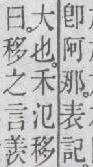 卽阿那。表記
大也。禾氾移
曰移之言羨